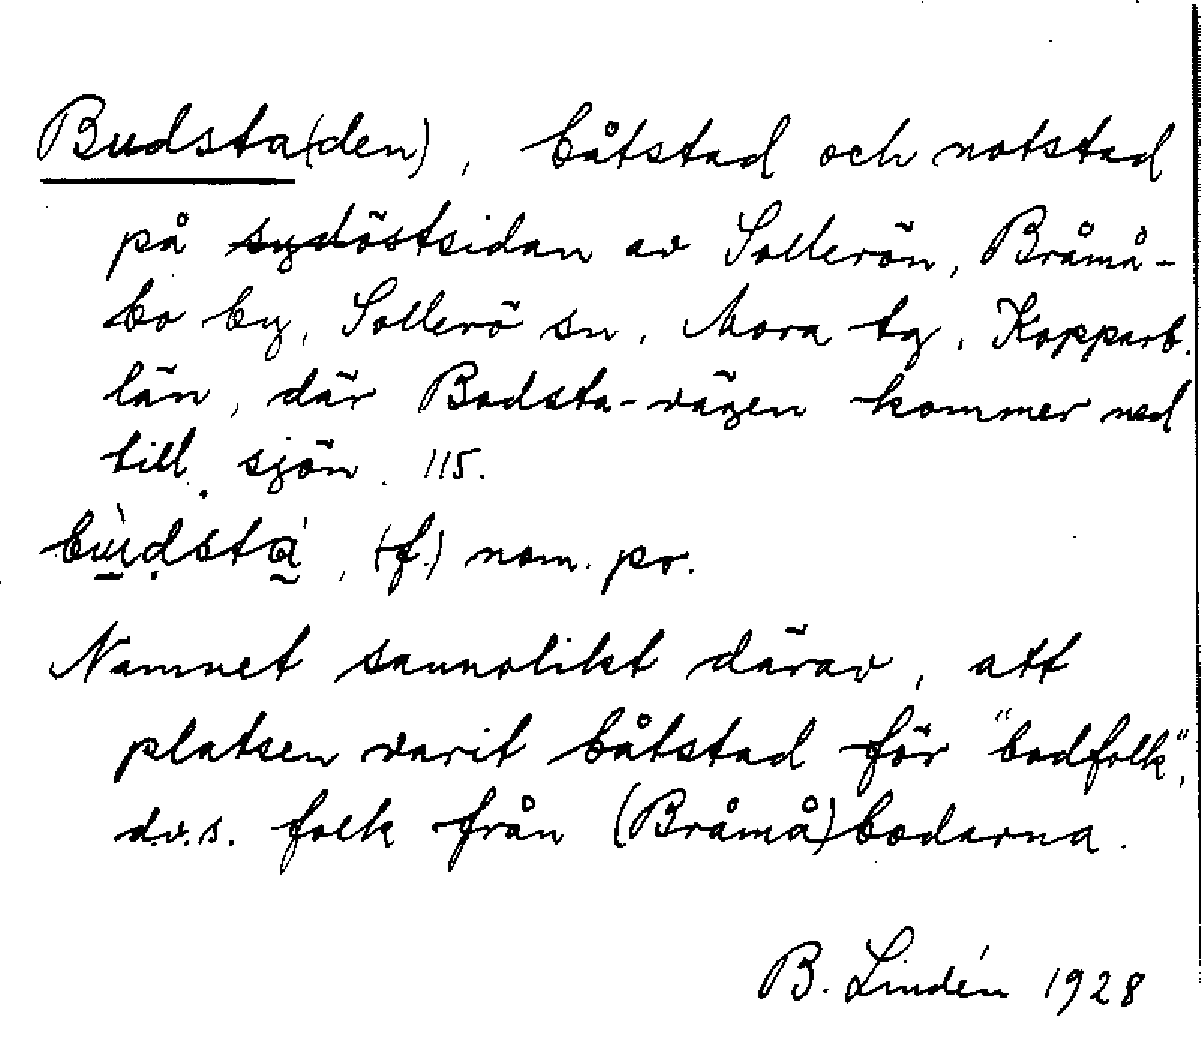 Budsta(den), båtstad och notstad
på sydöstsidan av Sollerön, Bråmå-
bo by, Sollerö sn, Mora tg, Kopparb.
län, där Budsta-vägen kommer ned
till sjön. 115.
bùdsta̍, (f.) nom. pr.
Namnet sannolikt därav, att
platsen varit båtstad för "bodfolk",
d.v.s. folk från (Bråmå)bodarna.
B. Lindén 1928